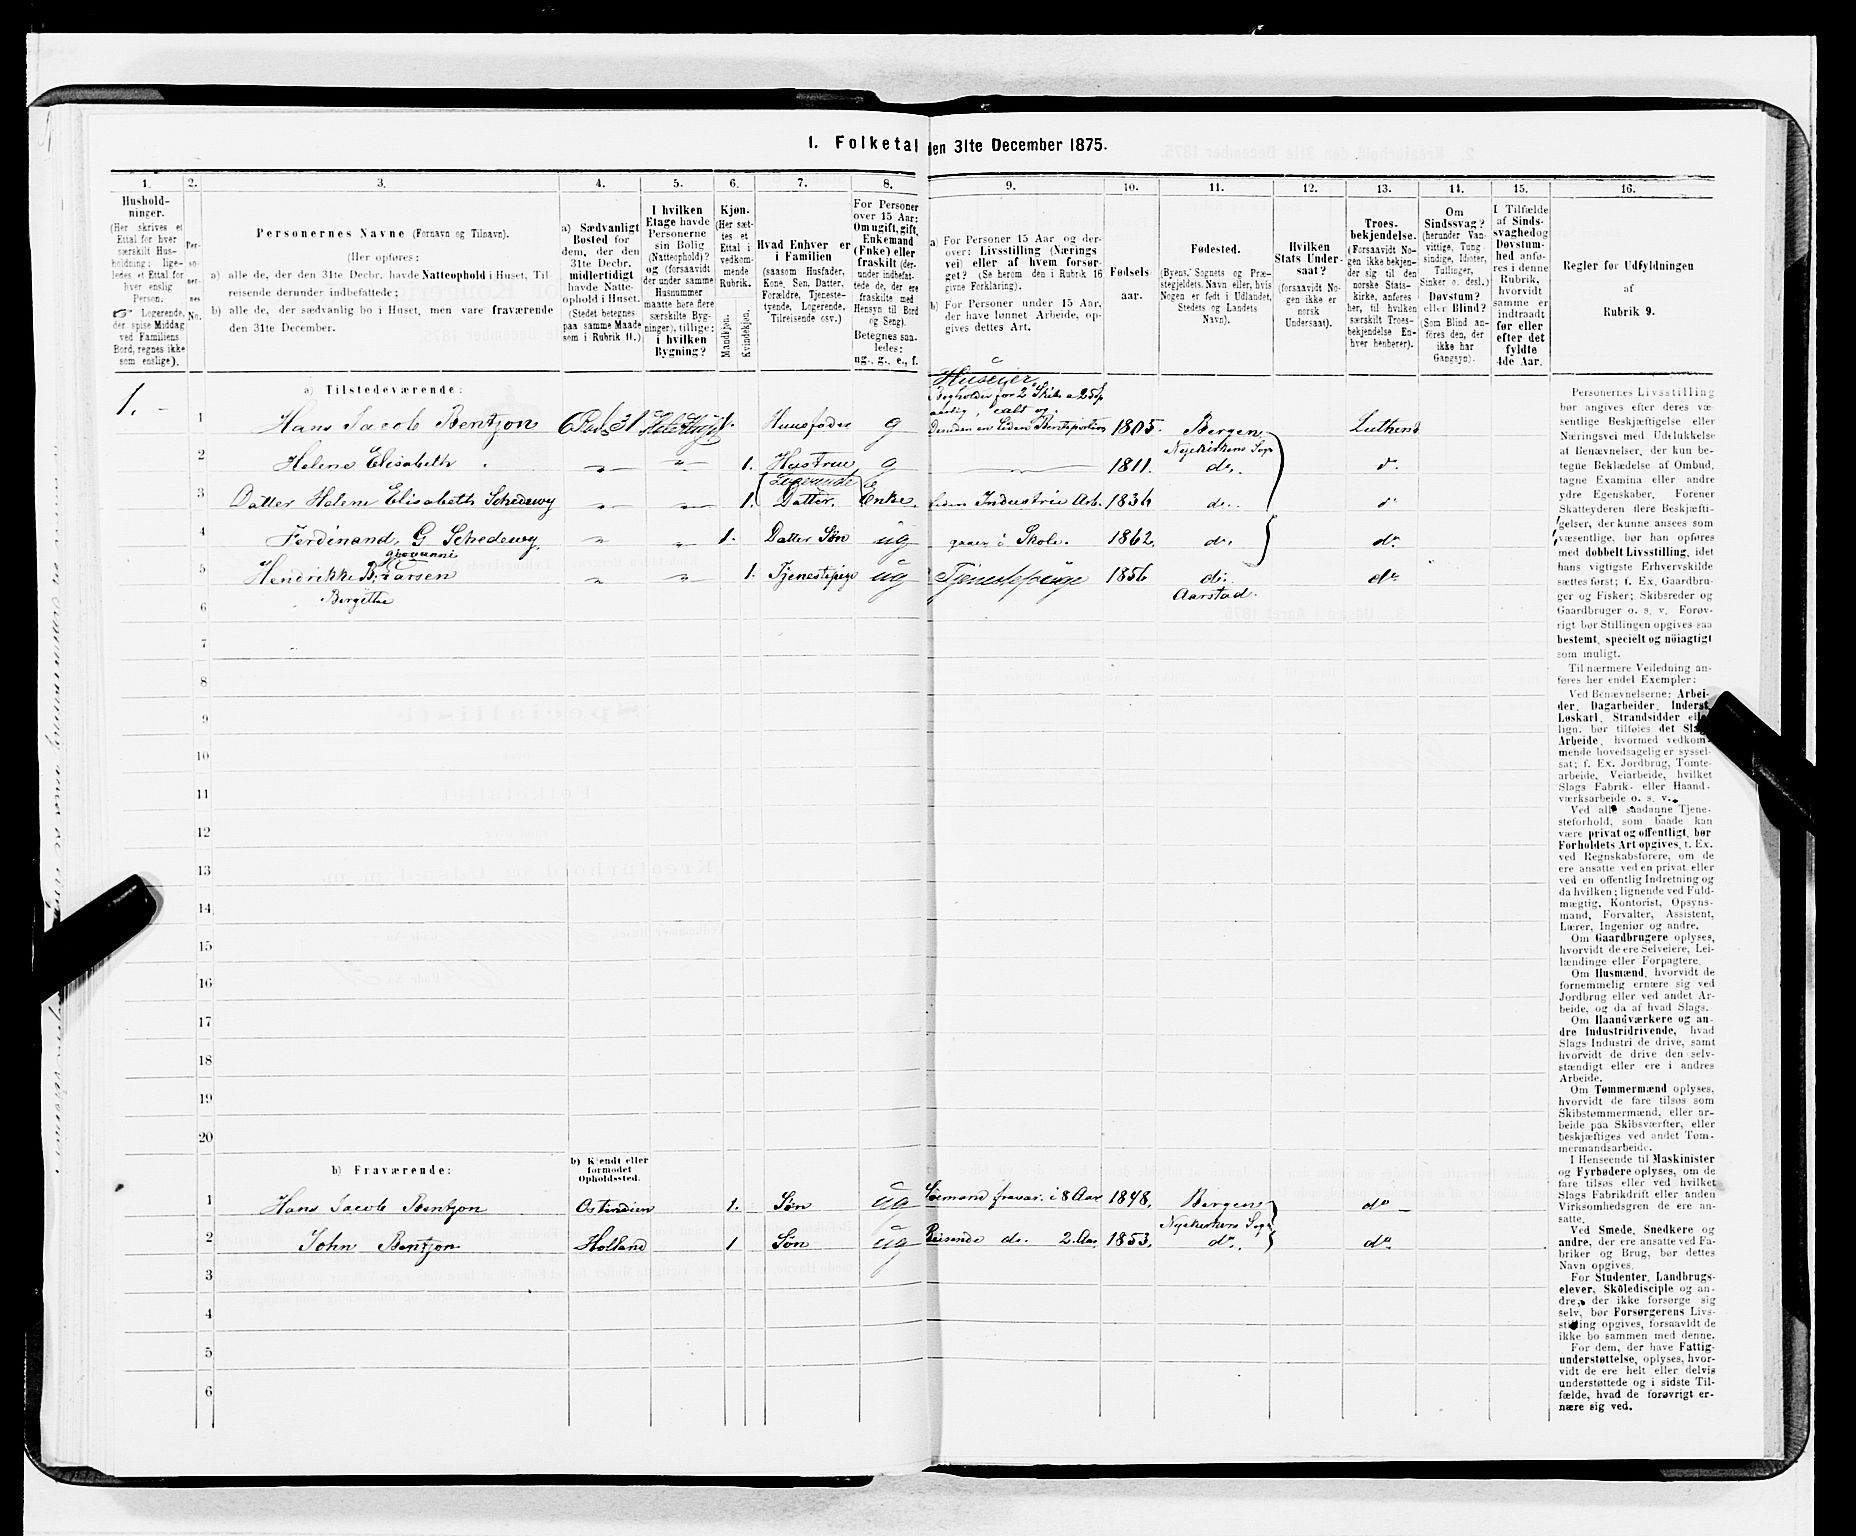 1. Folketal den 31te December 1875.
1. 2. 3. 4. 5. 6. 7. 8. 9. 10. 11. 12. 13. 14. 15. 16.
Hushold-
ninger.
(Her skrives et
Ettal for hver
særskilt Hus-
holdning; lige-
ledes et Ettal for
hver enslig
Person.
☞ Logerende,
der spise Middag
ved Familiens
Bord, regnes ikke
som enslige).
Per-
so-
ner-
nes
No.
Personernes Navne (Fornavn og Tilnavn).
(Her opføres:
a) alle de, der den 31te Decbr. havde Natteophold i Huset, Til-
reisende derunder indbefattede;
b) alle de, der sædvanlig bo i Huset, men vare fraværende
den 31te December.
a) Sædvanligt
Bosted for
dem, der den
31te Decbr.
midlertidigt
havde Natte-
ophold i Huset.
(Stedet betegnes
paa samme Maade
som i Rubrik 11.)
I hvilken
Etage havde
Personerne
sin Bolig
(Natteophold)?
og (forsaavidt
der under samme
Husnummer
maatte høre flere
særskilte Byg-
ninger), tillige:
i hvilken
Bygning?
Kjøn.
(Her sæt-
tes et
Ettal i
vedkom-
mende
Rubrik.
Mandkjøn.
Kvindekjøn.
Hvad Enhver er
i Familien
(saasom Husfader,
Kone, Søn, Datter,
Forældre, Tjeneste-
tyende, Logerende,
Tilreisende osv.)
For Personer
over 15 Aar:
Om ugift, gift,
Enkemand
(Enke) eller
fraskilt (der-
under indbefat-
tede de, der ere
fraskilte med
Hensyn til Bord
og Seng).
Betegnes saa-
ledes:
ug., g., e., f.
a) For Personer 15 Aar og der-
over: Livsstilling (Nærings
vei) eller af hvem forsør-
get? (Se herom den i Rubrik 16
givne Forklaring).
b) For Personer under 15 Aar,
der have lønnet Arbeide, op-
gives dettes Art.
Fødsels
aar.
Fødested.
(Byens, Sognets og Præ-
stegjeldets Navn eller, hvis
Nogen er født i Udlandet,
Stedets og Landets
Navn).
Hvilken
Stats Under-
saat?
(forsaavidt No-
gen ikke er
norsk
Undersaat).
Troes-
bekjendelse.
(Forsaavidt No-
gen ikke bekjen-
der sig til den
norske Stats-
kirke, anføres
her, til hvilken
særskilt Troes-
bekjendelse En-
hver henhører).
Om
Sindssvag?
(herunder Van-
vittige, Tung
sindige, Idioter,
Tullinger,
Sinker o. desl.)
Døvstum?
eller Blind?
(Som Blind an-
føres den, der
ikke har
Gangsyn).
I Tilfælde
af Sinds-
svaghed og
Døvstum-
hed anfø-
res i denne
Rubrik,
hvorvidt
samme er
indtraadt
før eller
efter det
fyldte
4de Aar.
Regler før Udfyldningen
af
Rubrik 9.
a) Tilstedeværende:
Huseier,
1. 1 Hans Jacob Bentzon g 1805. Bergen Luthersk
Nyekirkens Sogn
2 Helene Elisabeth 1. Hustrue g 1811. do.
Logerende
3 Datter Helene Elisabeth Schedewy 1. Datter. Enke. Liden Industrie Arb. 1836 do. do
4 Ferdinand. G Schedewy 1. Datter Søn ug gaaer i Skole. 1862. do. do.
5 Hendrikke B. Larsen 1. Tjenestepige ug Tjenestepige 1856 do. do
Bergitha Aarstad.
6
7
8
9
10
11
12
13
14
15
16
17
18
19
20
b) Fraværende:
b) Kjendt eller
formodet
Opholdssted.
1 Hans Jacob Bentzon Ostindien 1. Søn ug Sømand fravær. i 8 Aar 1848. Bergen do
Nyekirkens Sogn
2 John Bentzon Holland 1 Søn ug Reisende do. 2. Aar 1853. do. do
3
4
5
6
Personernes Livsstilling
bør angives efter deres væ-
sentlige Beskjæftigelse eller
Næringsvei med Udelukkelse
af Benævnelser, der kun be-
tegne Beklædelse af Ombud,
tagne Examina eller andre
ydre Egenskaber. Forener
Skatteyderen flere Beskjæfti-
gelser, der kunne ansees som
væsentlige, bør han opføres
med dobbelt Livsstilling, idet
hans vigtigste Erhvervskilde
sættes først; f. Ex. Gaardbru-
ger og Fisker; Skibsreder og
Gaardbruger o. s. v. Forøv-
rigt bør Stillingen opgives saa
bestemt, specielt og nöiagtigt
som muligt.
Til nærmere Veiledning an-
føres her endel Exempler:
Ved Benævnelserne: Arbei-
der, Dagarbeider, Inderst,
Løskarl, Strandsidder eller
lign. bør tilføies det Slags
Arbeide, hvormed vedkom-
mende hovedsagelig er syssel-
sat; f. Ex. Jordbrug, Tomte-
arbeide, Veiarbeide, hvilket
Slags Fabrik- eller Haand-
værksarbeide o. s. v.
Ved alle saadanne Tjene-
steforhold, som baade kan
være privat og offentligt, bør
Forholdets Art opgives, t. Ex.
ved Regnskabsførere, om de
ere ansatte ved en privat eller
ved en offentlig Indretning og
da hvilken; lignende ved Fuld-
mægtig, Kontorist, Opsyns-
mand, Forvalter, Assistent,
Lærer, Ingeniør og andre.
Om Gaardbrugere oplyses,
hvorvidt de ere Selveiere, Lei-
lændinge eller Forpagtere.
Om Husmænd, hvorvidt de
fornemmelig ernære sig ved
Jordbrug eller ved andet Ar-
beide, og da af hvad Slags.
Om Haandværkere og an-
dre Industridrivende, hvad
Slags Industri de drive, samt
hvorvidt de drive den selv-
stændigt eller ere i andres
Arbeide.
Om Tømmermænd oplyses,
hvorvidt de fare tilsøs som
Skibstømmermænd, eller ar-
beide paa Skibsværfter, eller
beskjæftiges ved andet Tøm-
mermandsarbeide.
I Henseende til Maskinister
og Fyrbødere oplyses, om de
fare tilsøs eller ved hvilket
Slags Fabrikdrift eller anden
Virksomhedsgren de ere an-
satte.
Ved Smede, Snedkere og
andre, der ere ansatte ved Fa-
briker og Brug, bør dettes
Navn opgives.
For Studenter, Landbrugs-
elever, Sköledisciple og an-
dre, der ikke forsørge sig
selv, bør Forsørgerens Livs-
stilling opgives, forsaavidt de
ikke bo sammen med denne.
For dem, der have Fattig-
understøttelse, oplyses, hvor-
vidt de ere helt eller delvis
understøttede og i sidste Til-
fælde, hvad de forøvrigt er-
nære sig ved.